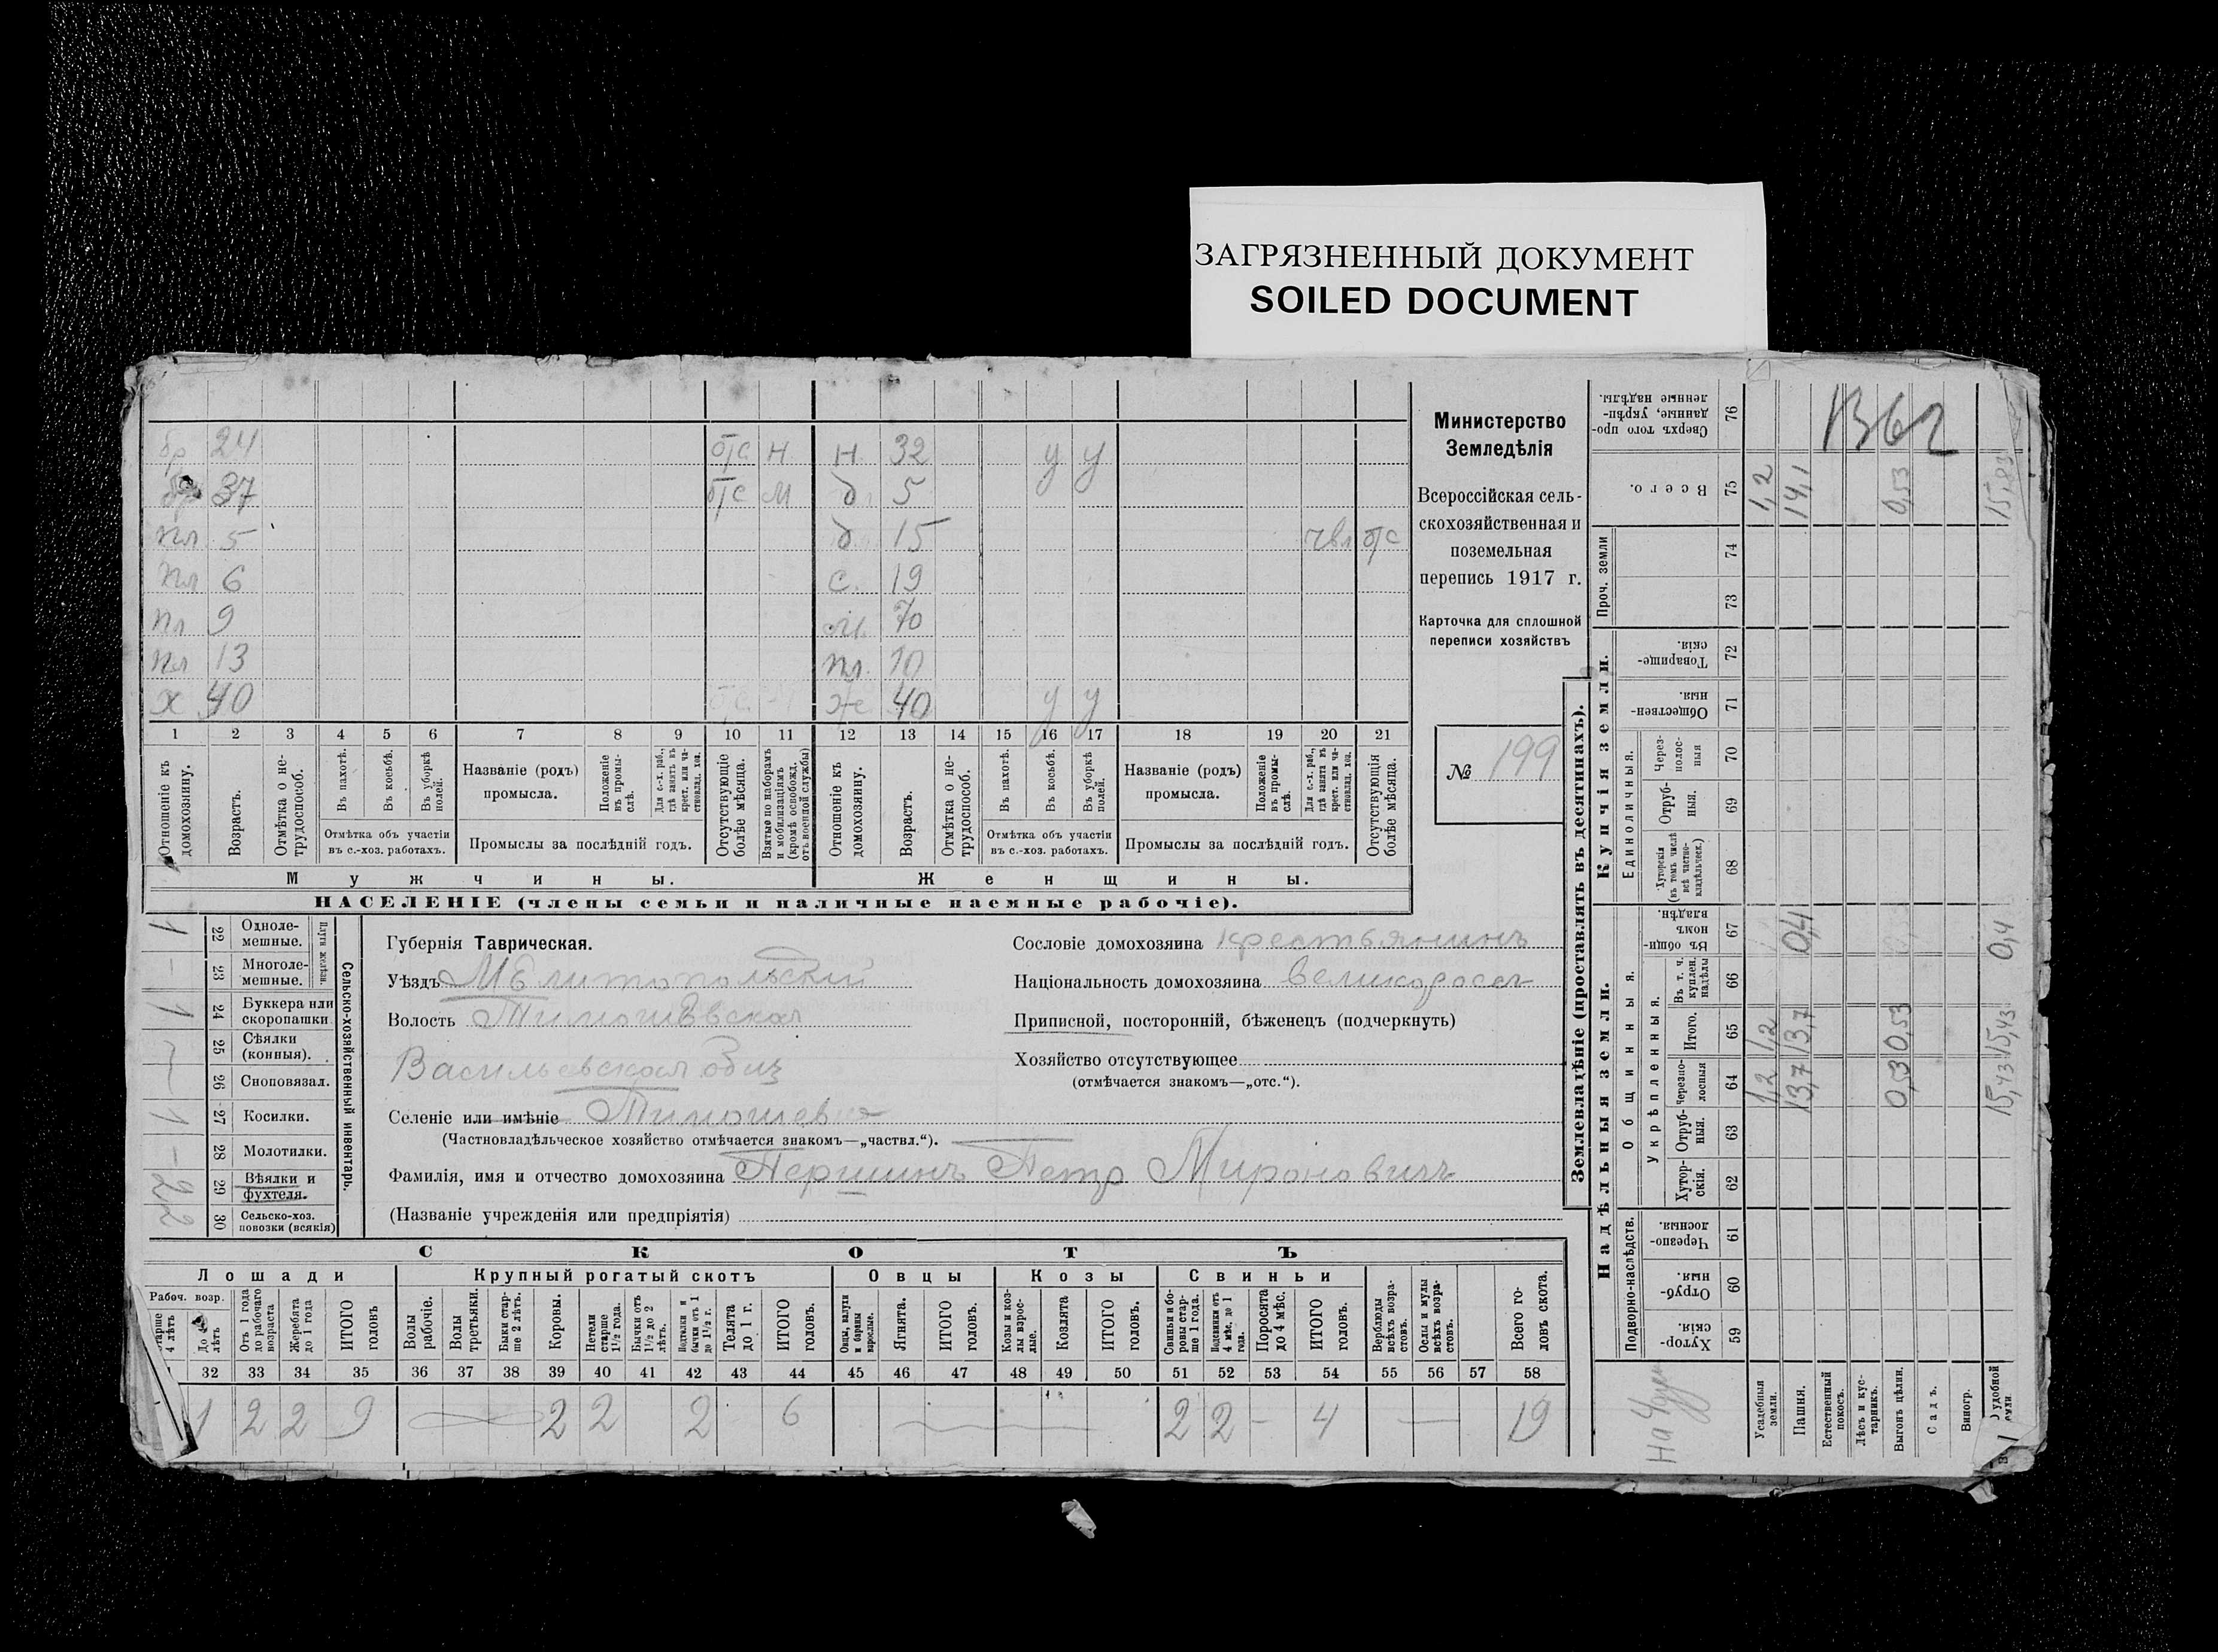 ЗАГРЯЗНЕННЫЙ ДОКУМЕНТ
SOILED DOCUMENT
бр 24 отс Н Н. 32 у у
37 отс М д. 5
пл 5 д 15 отс
пл 6 с. 19
пл 9 м. 70
пл 13 пл. 10
х 40 же 40 у у
1 2 3 4 5 6 7 8 9 10 11 12 13 14 15 16 17 18 19 20 21
Отношеніе къ домохозяину.
Возрастъ.
Отмѣтка о не-трудоспособ.
Въ пахотѣ.
Въ косьбѣ.
Въ уборкѣ полей.
Отмѣтка объ участіи въ с.-хоз. работахъ.
Названіе (родъ) промысла.
Положеніе въ промы-слѣ.
Для с.-х. раб., гдѣ занятъ въ крест. или ча-стновлад. хоз.
Промыслы за послѣдній годъ.
Отсутствующіе болѣе мѣсяца.
Взятые по наборамъ и мобилизаціямъ (кромѣ освобожд. отъ военной службы)
Отношеніе къ домохозяину.
Возрастъ.
Отмѣтка о не-трудоспособ.
Въ пахотѣ.
Въ косьбѣ.
Въ уборкѣ полей.
Отмѣтка объ участіи въ с.-хоз. работахъ.
Названіе (родъ) промысла.
Положеніе въ промы-слѣ.
Для с.-х. раб., гдѣ занята въ крест. или ча-стновлад. хоз.
Промыслы за послѣдній годъ.
Отсутствующія болѣе мѣсяца.
Мужчины. Женщины.
НАСЕЛЕНІЕ (члены семьи и наличные наемные рабочіе).
Министерство
Земледѣлія
Всероссійская сель-
скохозяйственная и
поземельная
перепись 1917 г.
Карточка для сплошной
переписи хозяйствъ
№ 199
Сельско-хозяйственный инвентарь.
Плуги желѣзн.
1 22 Одноле-мешные.
- 23 Многоле-мешные.
1 24 Буккера или скоропашки
25 Сѣялки (конныя).
26 Сноповязал.
1 27 Косилки.
- 28 Молотилки.
2 29 Вѣялки и фухтеля.
2 30 Сельско-хоз. повозки (всякія)
Губернія Таврическая.
Уѣздъ Мелитопольскій
Волость Тимошевская
Васильевская общ
Селеніе или имѣніе Тимошевка
(Частновладѣльческое хозяйство отмѣчается знакомъ—„частвл.“).
Фамилія, имя и отчество домохозяина Першинъ Петр Мироновичъ
(Названіе учрежденія или предпріятія)
Сословіе домохозяина крестьянинъ
Національность домохозяина великоросс
Приписной, посторонній, бѣженецъ (подчеркнуть)
Хозяйство отсутствующее
(отмѣчается знакомъ—„отс.“).
СКОТЪ
Лошади Крупный рогатый скотъ Овцы Козы Свиньи
Рабоч. возр.
старше 4 лѣтъ
До 4 лѣтъ
Отъ 1 года до рабочаго возраста
Жеребята до 1 года
ИТОГО головъ
Волы рабочіе.
Волы третьяки.
Быки стар-ше 2 лѣтъ.
Коровы.
Нетели старше 1½ года.
Бычки отъ 1½ до 2 лѣтъ.
бычки отъ 1 до 1½ г.
Телята до 1 г.
ИТОГО головъ.
Овцы, валухи и бараны взрослые.
Ягнята.
ИТОГО головъ.
Козы и коз-лы взрос-лые.
Козлята
ИТОГО головъ.
Свиньи и бо-ровы стар-ше 1 года.
Подсвинки отъ 4 мѣс. до 1 года.
Поросята до 4 мѣс.
ИТОГО головъ.
Верблюды всѣхъ возра-стовъ.
Ослы и мулы всѣхъ возра-стовъ.
Всего го-ловъ скота.
32 33 34 35 36 37 38 39 40 41 42 43 44 45 46 47 48 49 50 51 52 53 54 55 56 57 58
1 2 2 9 2 2 2 6 2 2 - 4 — 19
Землевладѣніе (проставлять въ десятинахъ).
Надѣльныя земли. Купчія земли.
Подворно-наслѣдств.
Общинныя.
Укрѣпленныя.
Единоличныя.
Проч. земли
59 Хутор-скія.
60 Отруб-ныя.
61 Черезпо-лосныя.
62 Хутор-скія.
63 Отруб-ныя.
64 Черезпо-лосныя
65 Итого.
66 Въ т. ч. куплен. надѣлы
67 Въ общи-номъ владѣн.
68 Хуторскія (въ томъ числѣ всѣ частно-владѣльческ.)
69 Отруб-ныя.
70 Через-полос-ныя
71 Обществен-ныя.
72 Товарище-скія.
73
74
75 Всего.
76 Сверхъ того про-данные, укрѣп-ленные надѣлы.
Усадебныя земли. 1,2 1,2 1,2
Пашня. 13,7 13,7 0,4 14,1
Естественный покосъ.
Лѣсъ и кус-тарникъ.
Выгонъ цѣлин. 0,53 0,53 0,53
Садъ.
Виногр.
удобной земли 15,43 15,43 0,4 15,83
1362